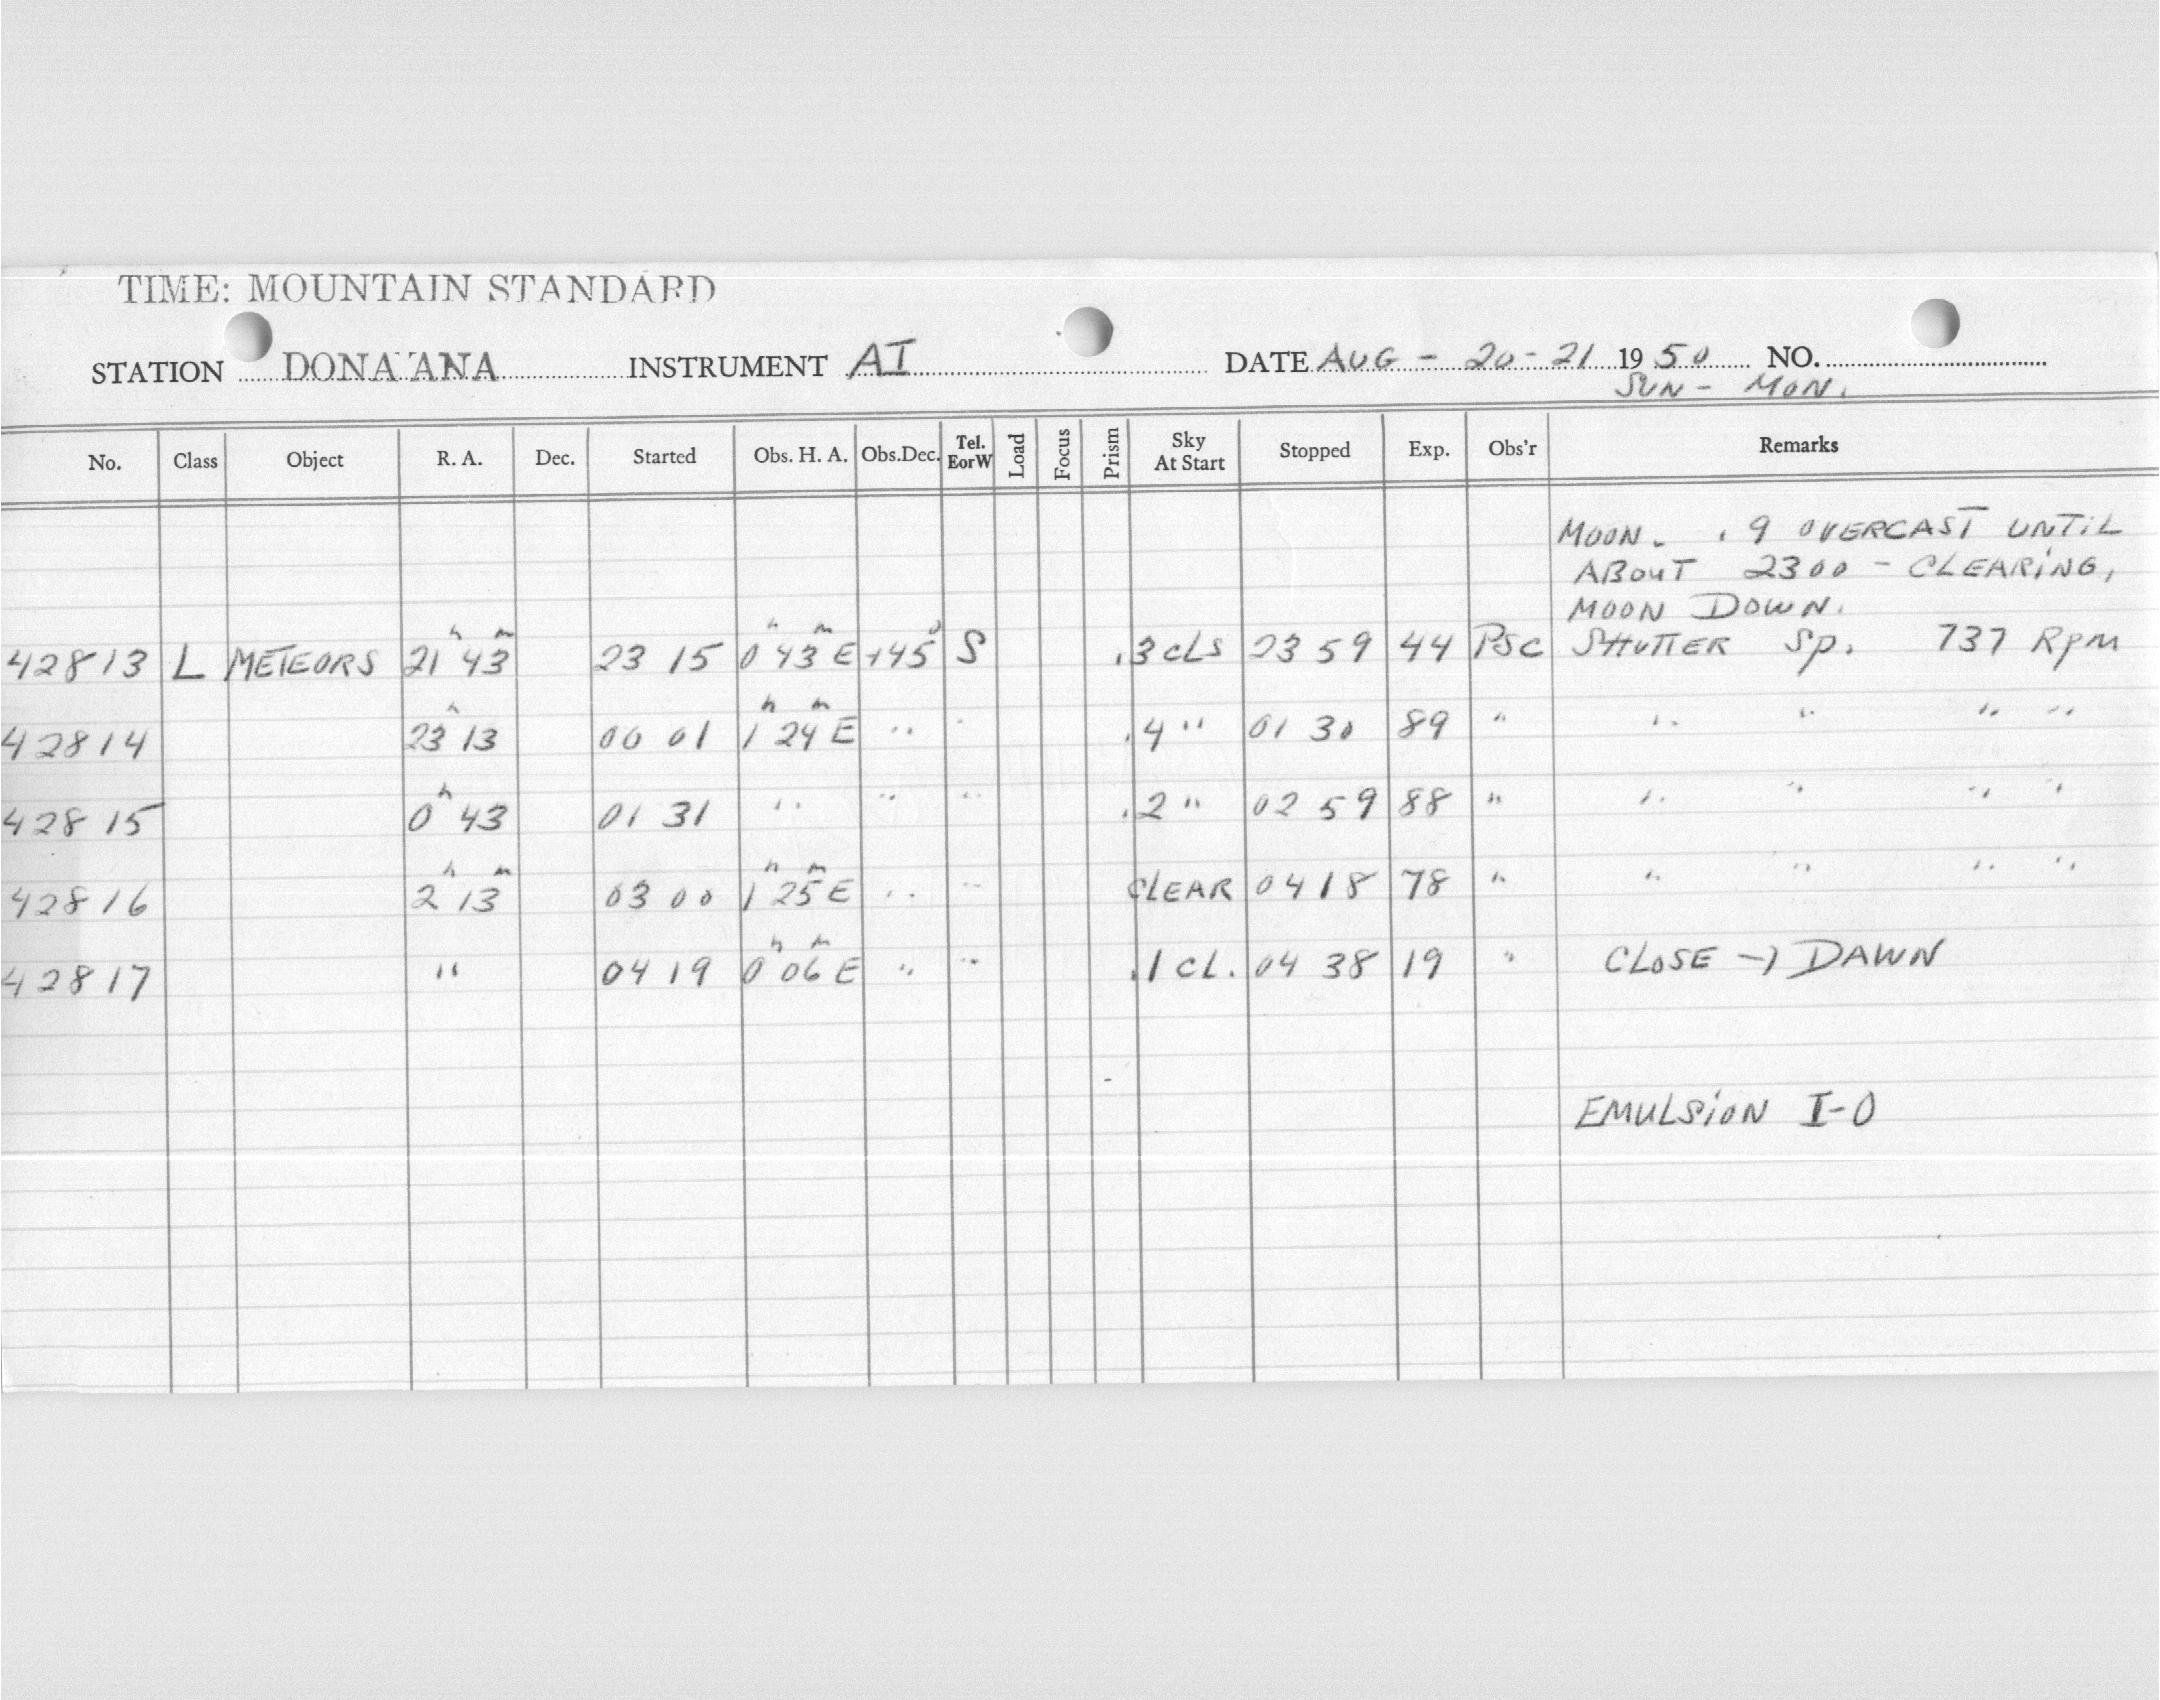 TIME: MOUNTAIN STANDARD
STATION DONA ANA INSTRUMENT AI DATE AUG - 20-21 1950 NO.
SUN - MON.
No. Class Object R. A. Dec. Started Obs. H. A. Obs.Dec. Tel. EorW Load Focus Prism Sky At Start Stopped Exp. Obs'r Remarks
MOON. .9 OVERCAST UNTIL
ABOUT 2300 - CLEARING,
MOON DOWN.
42813 L METEORS 21h 43m 23 15 0h 43m E +45° S .3 cLS 23 59 44 PSC SHUTTER Sp. 737 Rpm
42814 23h 13 00 01 1h 24m E " " .4 " 01 30 89 " " " " "
42815 0h 43 01 31 " " " .2 " 02 59 88 " " " " "
42816 2h 13m 03 00 1h 25m E " " CLEAR 04 18 78 " " " " "
42817 " 04 19 0h 06m E " " .1 CL. 04 38 19 " CLOSE → DAWN
EMULSION I-O